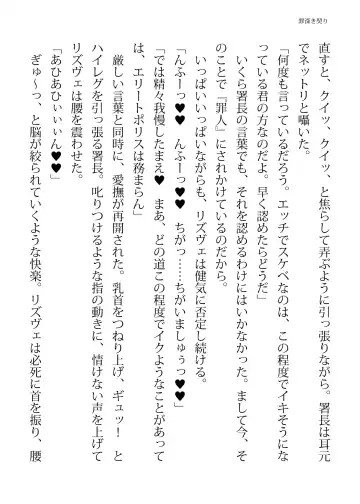 罪深き契り
直すと、クイッ、クイッ、と焦らして弄ぶように引っ張りながら。署長は耳元
でネットリと囁いた。
「何度も言っているだろう。エッチでスケベなのは、この程度でイキそうにな
っている君の方なのだよ。早く認めたらどうだ」
いくら署長の言葉でも、それを認めるわけにはいかなかった。まして今、そ
のことで『罪人』にされかけているのだから。
いっぱいいっぱいながらも、リズヴェは健気に否定し続ける。
「んふーっ♥♥　んふーっ♥♥　ちがっ……ちがいましゅぅっ♥♥」
「では精々我慢したまえ♥　まあ、どの道この程度でイクようなことがあって
は、エリートポリスは務まらん」
厳しい言葉と同時に、愛撫が再開された。乳首をつねり上げ、ギュッ！　と
ハイレグを引っ張る署長。叱りつけるような指の動きに、情けない声を上げて
リズヴェは腰を震わせた。
「あひあひぃぃぃん♥♥」
ぎゅ～っ、と脳が絞られていくような快楽。リズヴェは必死に首を振り、腰